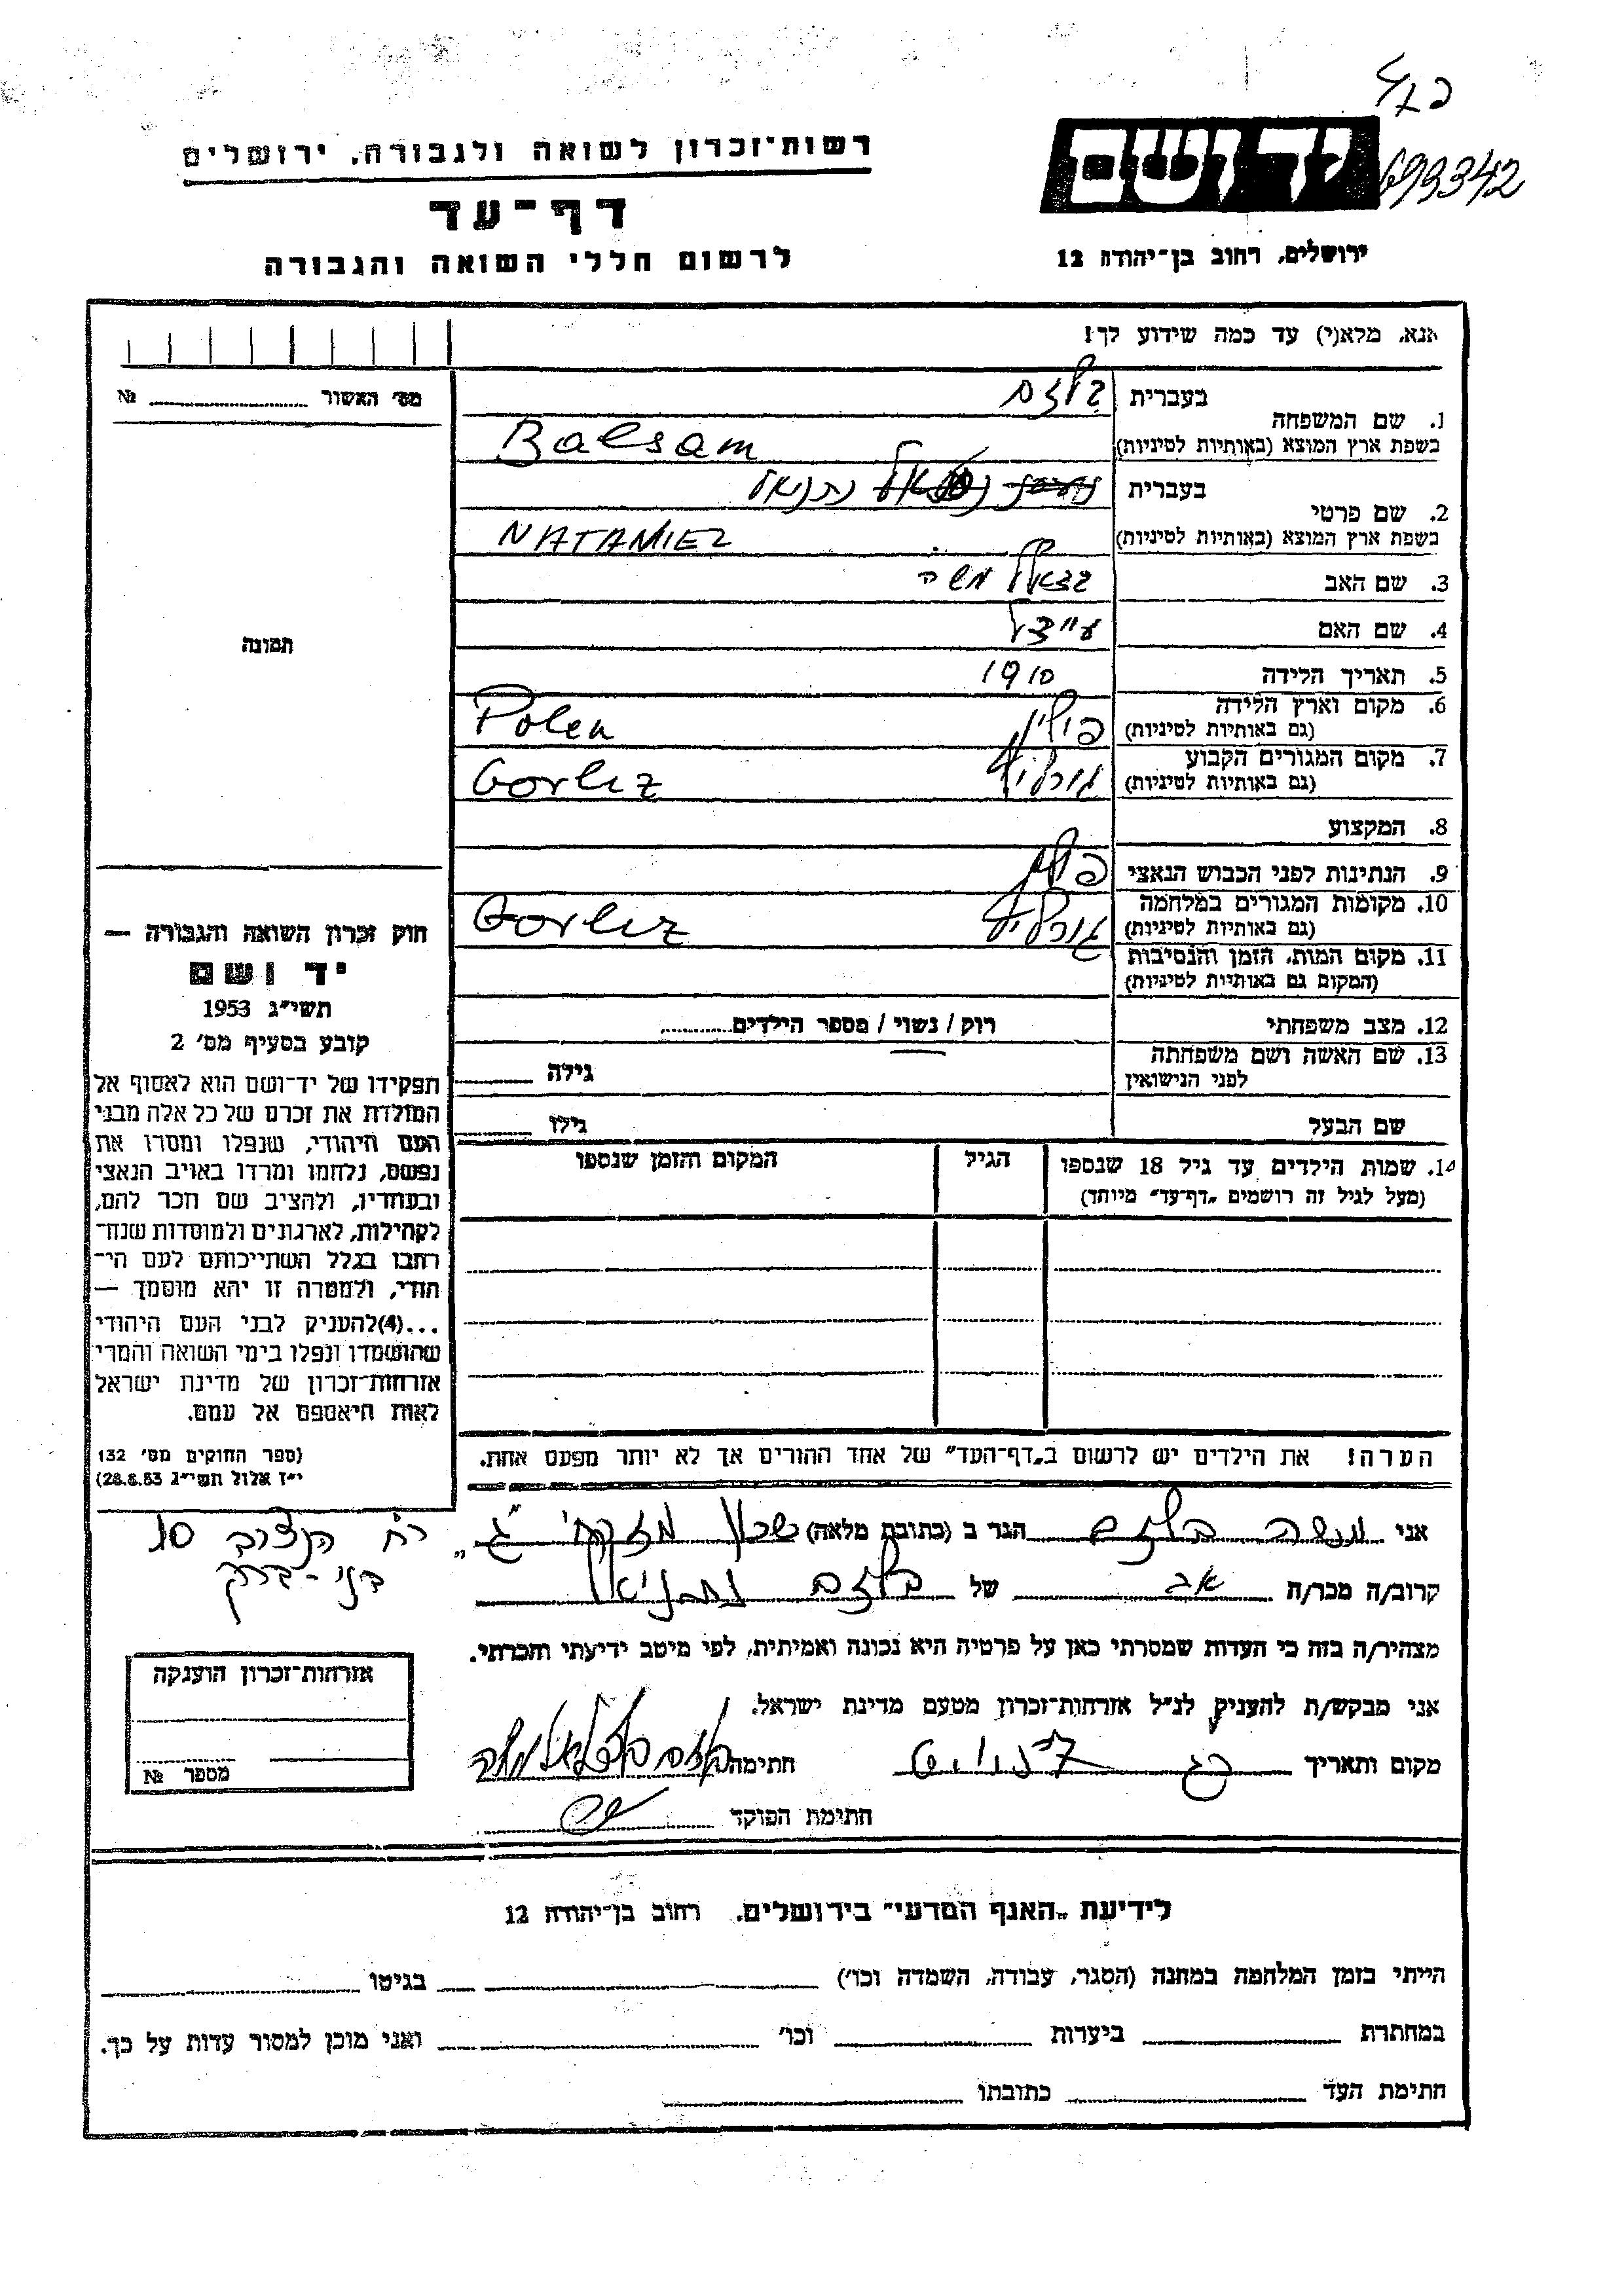 699342
יד ושם
רשות־זכרון לשואה ולגבורה, ירושלים
דף־עד
לרשום חללי השואה והגבורה
ירושלים, רחוב בן־יהודה 12
אנא, מלא(י) עד כמה שידוע לך!
מס׳ האשור № 
1. שם המשפחה
בעברית בלזם
בשפת ארץ המוצא (באותיות לטיניות) Balsam
2. שם פרטי
בעברית נתנאל
בשפת ארץ המוצא (באותיות לטיניות) NATANIEL
3. שם האב בצלאל משה
4. שם האם
5. תאריך הלידה 1910
6. מקום וארץ הלידה
(גם באותיות לטיניות) פולין Polen
7. מקום המגורים הקבוע
(גם באותיות לטיניות) גורליץ Gorliz
8. המקצוע
9. הנתינות לפני הכבוש הנאצי
10. מקומות המגורים במלחמה
(גם באותיות לטיניות) גורליץ Gorliz
11. מקום המות, הזמן והנסיבות
(המקום גם באותיות לטיניות)
12. מצב משפחתי רוק / נשוי / מספר הילדים
13. שם האשה ושם משפחתה
לפני הנישואין גילה
שם הבעל גילו
14. שמות הילדים עד גיל 18 שנספו הגיל המקום והזמן שנספו
(מעל לגיל זה רושמים „דף־עד״ מיוחד)
הערה! את הילדים יש לרשום ב„דף־העד״ של אחד ההורים אך לא יותר מפעם אחת.
תמונה
חוק זכרון השואה והגבורה —
יד ושם
תשי״ג 1953
קובע בסעיף מס׳ 2
תפקידו של יד־ושם הוא לאסוף אל
המולדת את זכרם של כל אלה מבני
העם היהודי, שנפלו ומסרו את
נפשם, נלחמו ומרדו באויב הנאצי
ובעוזריו, ולהציב שם וזכר להם,
לקהילות, לארגונים ולמוסדות שנח־
רבו בגלל השתייכותם לעם הי־
הודי, ולמטרה זו יהא מוסמך —
...(4)להעניק לבני העם היהודי
שהושמדו ונפלו בימי השואה והמרי
אזרחות־זכרון של מדינת ישראל
לאות היאספם אל עמם.
(ספר החוקים מס׳ 132
י״ז אלול תשי״ג 28.8.53)
אני משה בלזם הגר ב (כתובת מלאה) שכון מזרחי ג״
רח הנציב 10
בני-ברק
קרוב/ה מכר/ה אב של בלזם נתניאל
מצהיר/ה בזה כי העדות שמסרתי כאן על פרטיה היא נכונה ואמיתית, לפי מיטב ידיעתי והכרתי.
אני מבקש/ת להעניק לנ״ל אזרחות־זכרון מטעם מדינת ישראל.
מקום ותאריך חתימה
חתימת הפוקד
אזרחות־זכרון הוענקה
מספר №
לידיעת „האגף המדעי״ בירושלים, רחוב בן־יהודה 12
הייתי בזמן המלחמה במחנה (הסגר, עבודה, השמדה וכו׳) בגיטו
במחתרת ביערות וכו׳ ואני מוכן למסור עדות על כך.
חתימת העד כתובתו